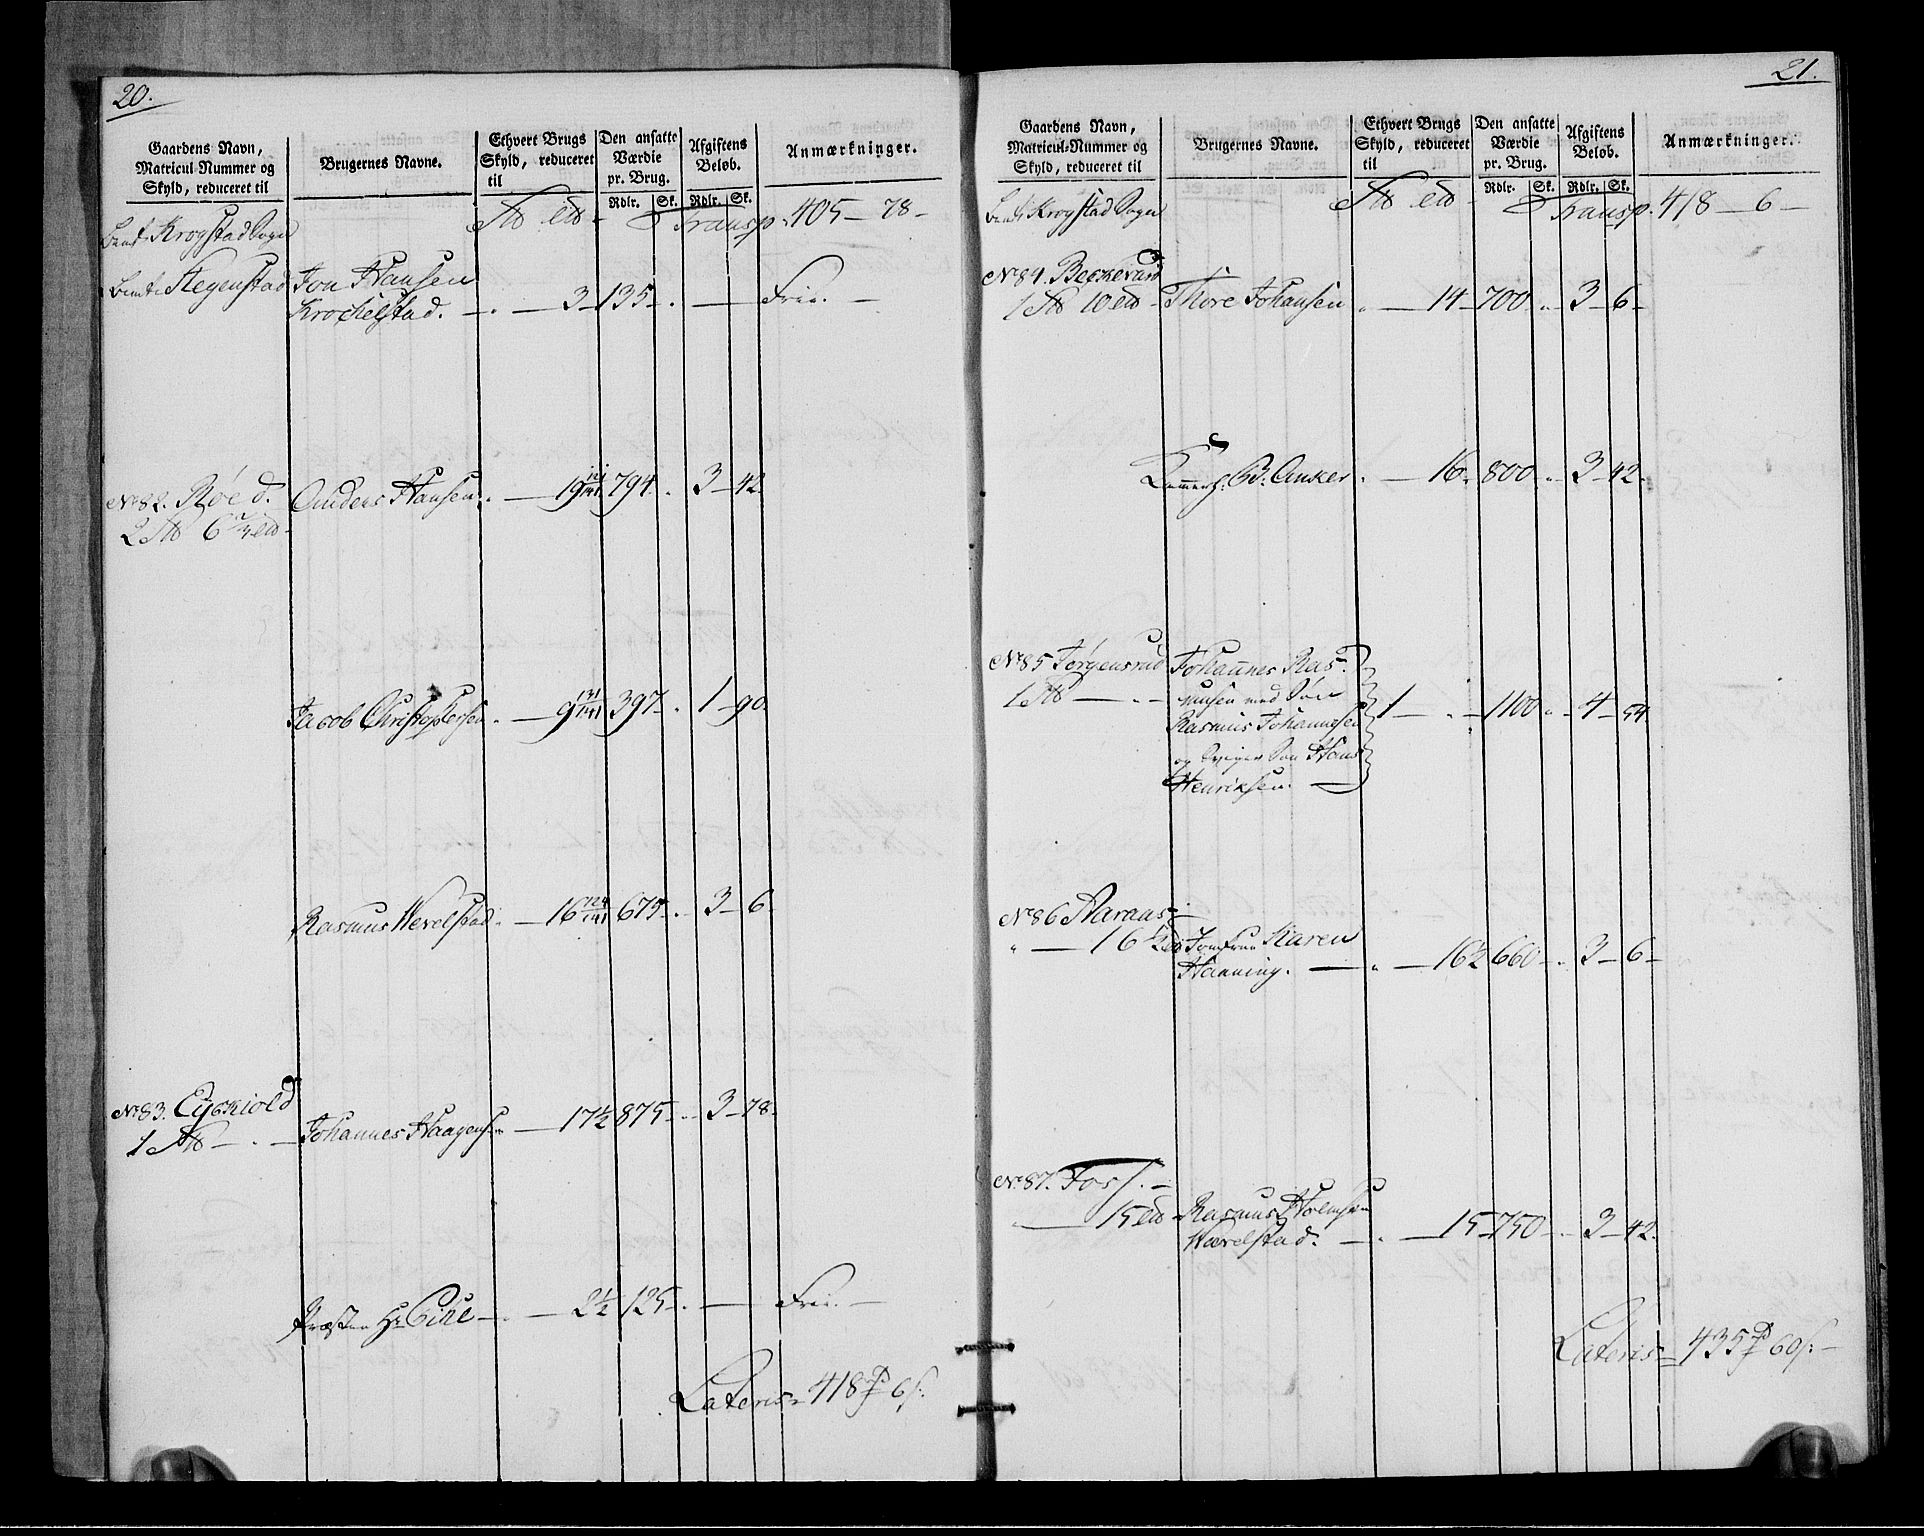 20.
Gaardens Navn,
Matricul-Nummer og
Skyld, reduceret til
Brugernes Navne.
Ethvert Brugs
Skyld, reduceret
til
Den ansatte
Værdie
pr. Brug.
Rdlr. Sk.
Afgiftens
Beløb.
Rdlr. Sk.
Anmærkninger.
Krogstad Sogn
Transp. 405 — 78 —
Stegenstad Jon Hansen
Krochelstad. — 3 — 135 — . — Frie. —
No 82. Røed. Anders Hansen. — 19 121/141 794 . 3 — 42
2 6 2/4
Jacob Christophersen . — 9 131/141 397 . 1 — 90.
Rasmus Wevelstad. — 16 124/141 675 — . 3 — 6
No 83. Eyskiold
1 — . — Johannes Haagens — 17 1/2 875 — . 3 — 78.
Præsten Hr — 2 1/2 125 — . — Frie. —
Lateris 418 6
21.
Gaardens Navn,
Matricul-Nummer og
Skyld, reduceret til
Brugernes Navne.
Ethvert Brugs
Skyld, reduceret
til
Den ansatte
Værdie
pr. Brug.
Rdlr. Sk.
Afgiftens
Beløb.
Rdlr. Sk.
Anmærkninger.
Krogstad Sogn
Transp. 418 — 6 —
No 84.
1 10 Thore Johansen . — 14 — 700 — . 3 — 6 —
Kammerh. B. Anker . — 16 . 800 . . 3 — 42 —
No 85 Jørgensrud Johannes Ras-
1 — . — musen med Søn
Rasmus Johannesen 1 — . — 1100 . . 4 — 54
og Sviger Søn Hans
Henriksen. —
No 86 Haraas —
" — 16 1/2 Jomfrue Karen
Hanning. — . — 16 1/2 660 — . 3 — 6 —
No 87. Foss. —
" — 15 Rasmus
Wævelstad. — . — 15 — 750 — . 3 — 42.
Lateris 435 60